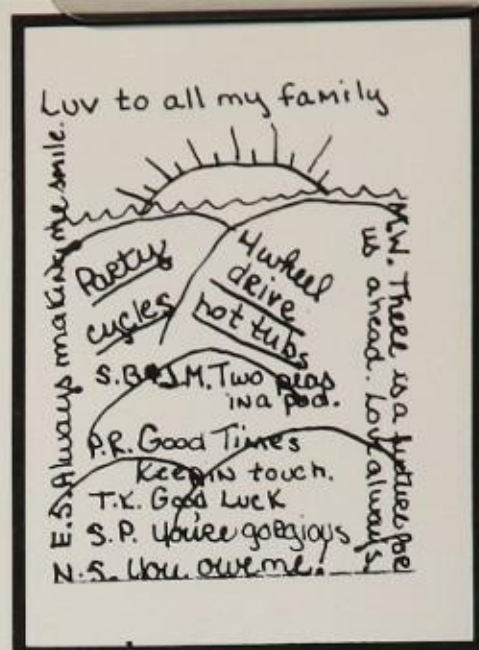 Luv to all my family
E.S. Always making me smile.
Party
cycles
4 wheel
drive
hot tubs
M.W. There is a future for
is ahead. Love always
S.B & J.M. Two peas
in a pod.
P.R. Good Times
Keep in touch.
T.K. Good Luck
S.P. You're gorgious
N.S. You owe me!